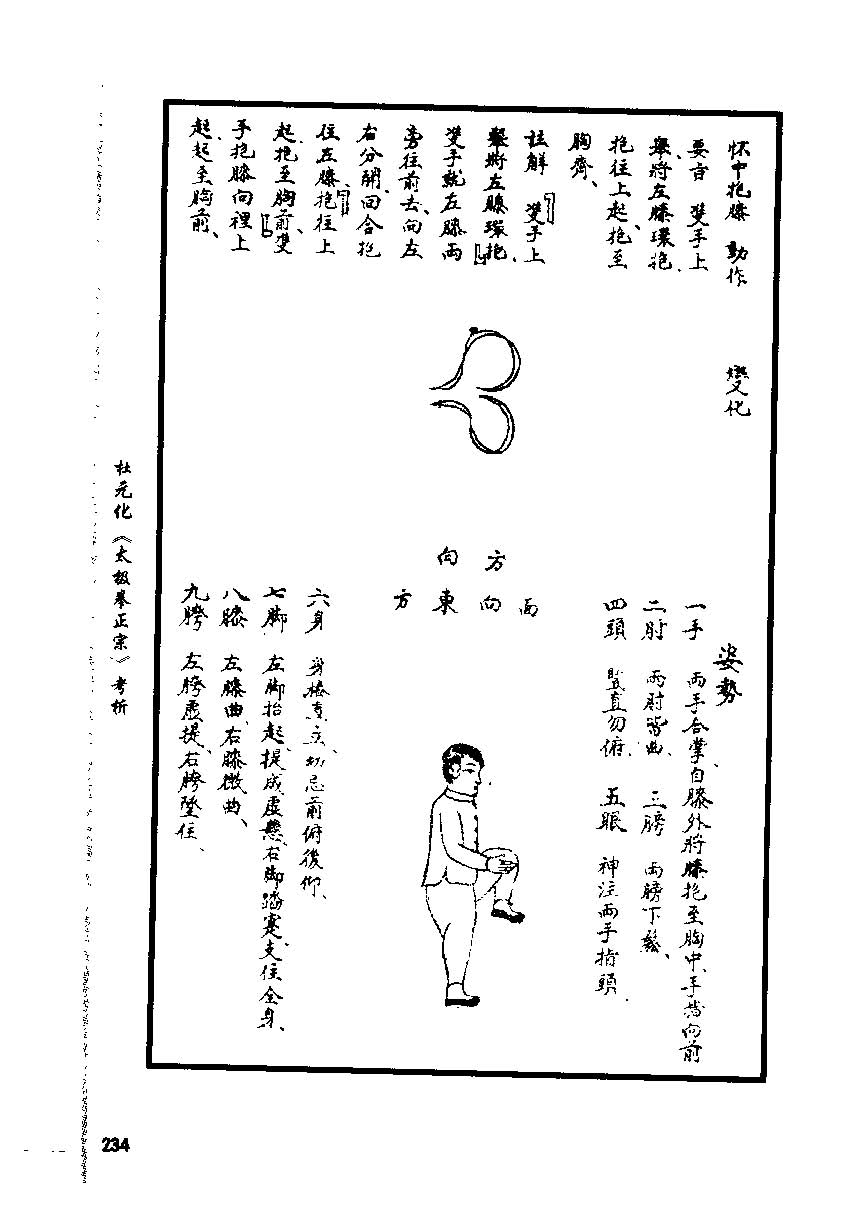 怀中抱膝 動作 變化
要言 雙手上
舉將左膝環抱、
抱往上起、抱至
胸齊、
註解 「雙手上
舉將左膝環抱、」
雙手就左膝兩
旁往前去、向左
右分開、回合抱
住左膝、「抱往上
起、抱至胸前」雙
手抱膝向裡上
起、起至胸前、
方向
面向東方
姿勢
一手 兩手合掌、自膝外將膝抱至胸中、手指向前
二肘 兩肘皆曲、 三膀 兩膀下鬆、
四頭 豎直勿俯、 五眼 神注兩手指頭、
六身 身樁直立、切忌前俯後仰、
七脚 左脚抬起、提成虛懸、右脚踏實、支住全身、
八膝 左膝曲、右膝微曲、
九胯 左胯虛提、右胯墜住、
杜元化《太极拳正宗》考析
234